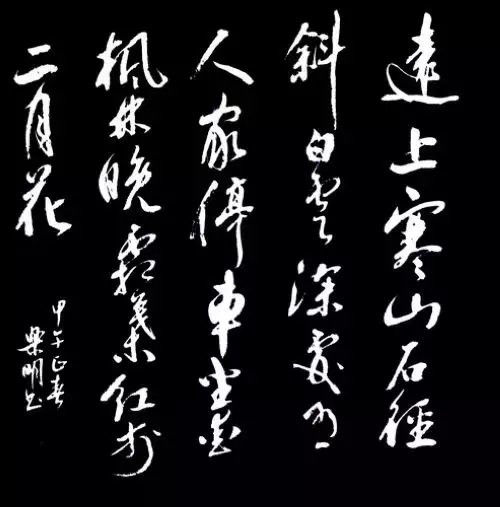 遠上寒山石徑
斜白雲深處有
人家停車坐愛
楓林晚霜葉紅於
二月花
甲午正春
樂明书